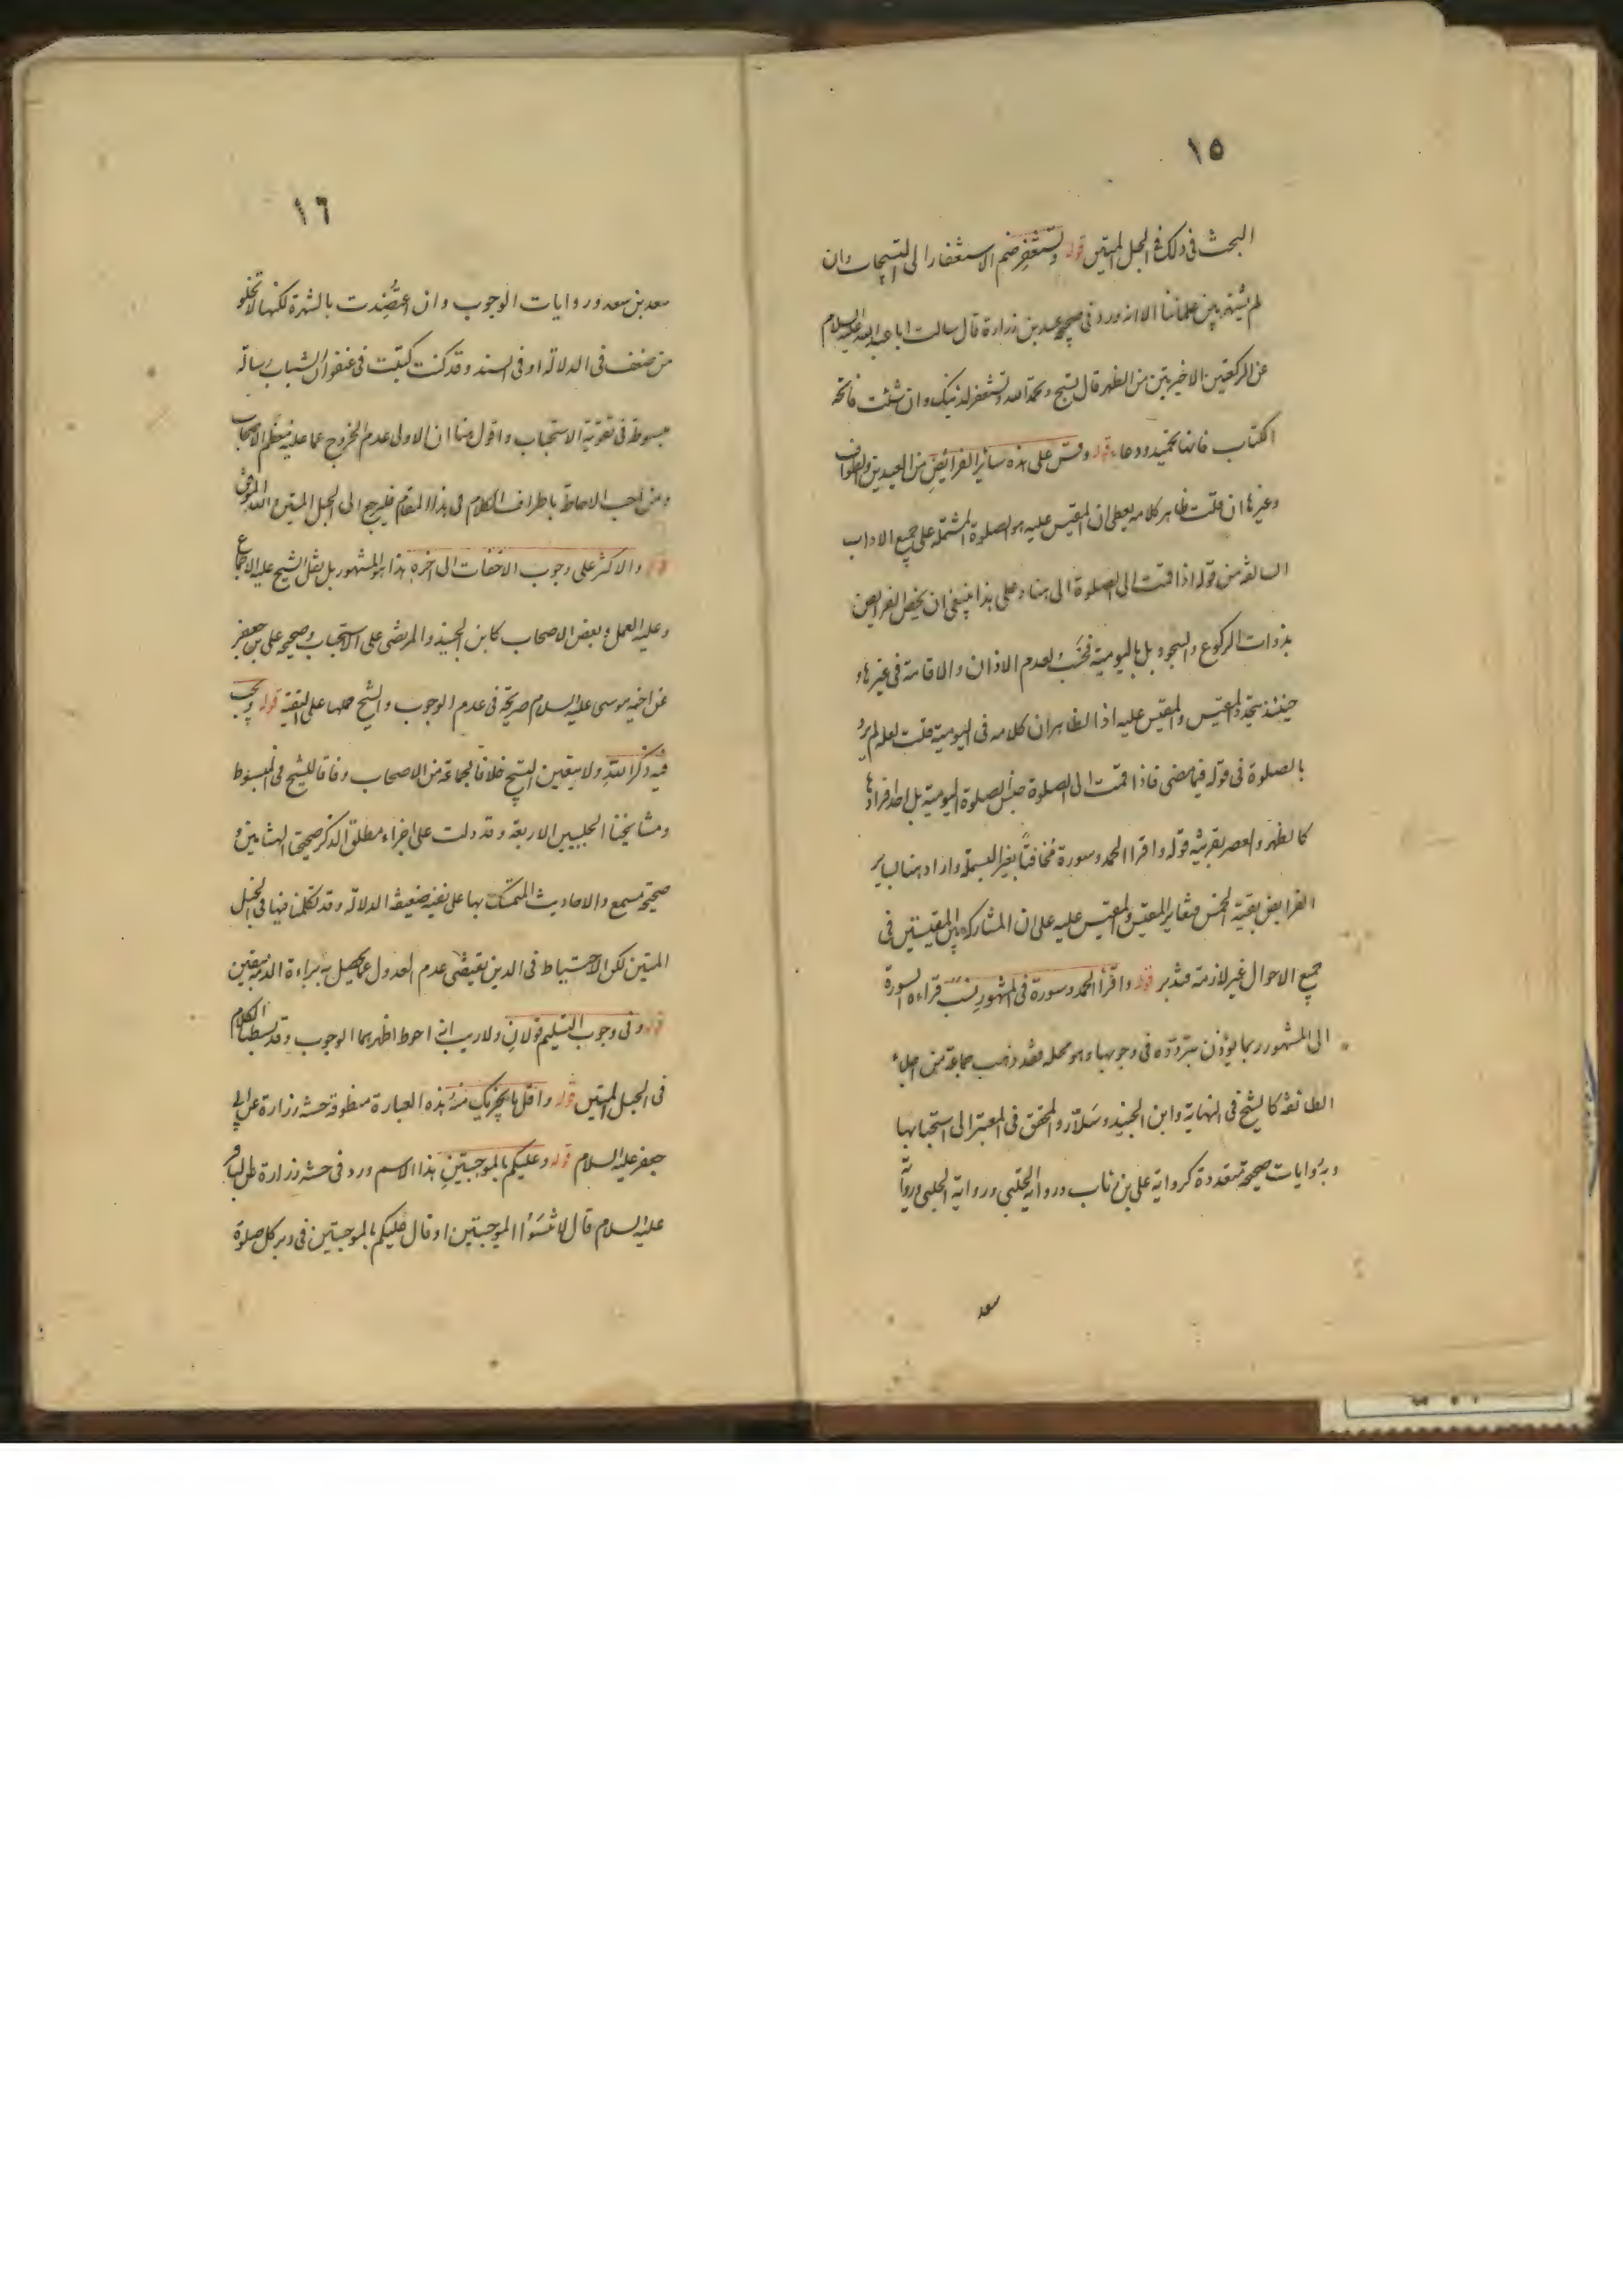 ١٥
البحث فى ذلك فى الحبل المتين قوله وتستغفر ضم الاستغفار الى التسبيحات وان
لم يشتهر بين علمائنا الا انه ورد فى صحيحة عبيد بن زرارة قال سالت ابا عبد الله عليه السلام
عن الركعتين الاخيرتين من الظهر قال تسبح وتحمد الله وتستغفر لذنبك وان شئت فاتحة
الكتاب فانها تحميد ودعاء قوله وقس على هذه سائر الفرائض من العيدين والطواف
وغيرها ان قلت ظاهر كلامه يعطى ان المقيس عليه هو الصلوة المشتملة على جميع الاداب
السالفة من قوله اذا قمت الى الصلوة الى هنا وعلى هذا ينبغى ان يخص الفرايض
بذوات الركوع والسجود بل باليومية فحسب لعدم الاذان والاقامة فى غيرها و
حينئذ يتحد المقيس والمقيس عليه اذ الظاهر ان كلامه فى اليومية قلت لعله لم يرد
بالصلوة فى قوله فيما مضى فاذا قمت الى الصلوة جنس الصلوة اليومية بل احد افرادها
كالظهر والعصر بقرينة قوله واقرا الحمد وسورة مخافتاً بغير البسملة واراد هنا بساير
الفرايض بقية الخمس فتغاير المقيس والمقيس عليه على ان المشاركة بين المقيسين فى
جميع الاحوال غير لازمة فتدبر قوله واقرأ الحمد وسورة فى المشهور نسب قراءة السورة
الى المشهور ربما يؤذن بتردده فى وجوبها وهو محله فقد ذهب جماعة من اجلاء
الطائفة كالشيخ فى النهاية وابن الجنيد وسلّار والمحقق فى المعتبر الى استحبابها
وبه روايات صحيحة متعددة كرواية على بن رئاب ورواية الحلبى ورواية الحلبى ورواية
سعد
١٦
سعد بن سعد وروايات الوجوب وان اعتضدت بالشهرة لكنها لا تخلو
من ضعف فى الدلالة او فى السند وقد كنت كتبت فى عنفوان الشباب رسالة
مبسوطة فى تقوية الاستحباب واقول هنا ان الاولى عدم الخروج عما عليه معظم الاصحاب
ومن احب الاحاطة باطراف الكلام فى هذا المقام فليرجع الى الحبل المتين والله الموفق
قوله والاكثر على وجوب الاخفات الى اخره هذا هو المشهور بل نقل الشيخ عليه الاجماع
وعليه العمل وبعض الاصحاب كابن الجنيد والمرتضى على الاستحباب وصحيحة على بن جعفر
عن اخيه موسى عليه السلام صريحة فى عدم الوجوب والشيخ حملها على التقية قوله ويجب
فيه ذكر الله ولا يتعين التسبيح خلافاً لجماعة من الاصحاب وفاقا للشيخ فى المبسوط
ومشايخنا الحليين الاربعة وقد دلت على اجزاء مطلق الذكر صحيحتا الهشامين و
صحيحة مسمع والاحاديث المتمسك بها على نفيه ضعيفة الدلالة وقد تكلمنا فيها فى الحبل
المتين لكن الاحتياط فى الدين يقتضى عدم العدول عما يحصل به براءة الذمة بيقين
قوله وفى وجوب التسليم قولان ولا ريب انه احوط اظهرهما الوجوب وقد بسطنا الكلام
فى الحبل المتين قوله واقل ما يجزيك منه هذه العبارة منطوقة حسنة زرارة عن ابى
جعفر عليه السلام قوله وعليكم بالموجبتين هذا الاسم ورد فى حسنة زرارة عن الباقر
عليه السلام قال لا تنسوا الموجبتين او قال عليكم بالموجبتين فى دبر كل صلوة